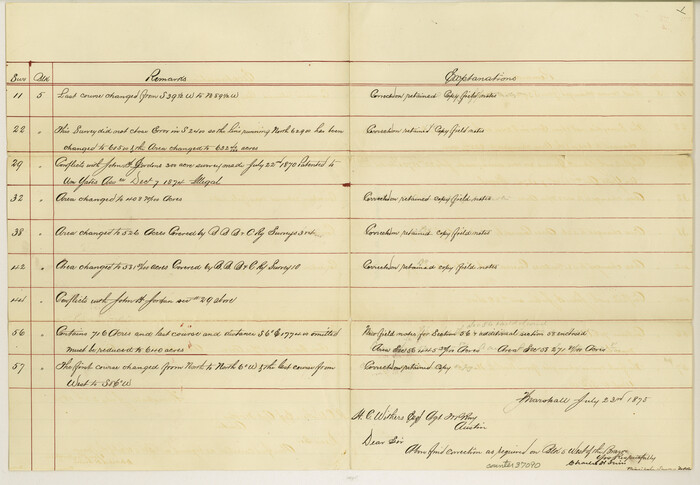 1
Sur Blk Remarks Explanations
11 5 Last course changed from S 39° W to N 59° W Correction retained Copy field notes
22 " This Survey did not close Error in S 240 so the line running North 6290 has been Correction retained Copy field notes
changed to 6050 & the Area changed to 632 acres
29 " Conflicts with John H Jordens 320 acre survey made July 22nd 1870 Patented to
Wm Yates Dec 7 1874 Illegal
32 " Area changed to 408 Acres Correction retained copy field notes
38 " Area changed to 526 Acres Covered by B.B.B & C Ry Surveys 3 & 4 Correction retained copy field notes
42 " Area changed to 521 acres Covered by B.B.B & C Ry Survey 10 Correction retained copy field notes
44 " Conflicts with John H Jordan see # 29 above
56 " Contains 716 Acres and last course and distance S 6° E 1774 vs omitted New field notes for Section 56 & additional section 58 enclosed
must be reduced to 640 acres Area Sec 56 Acres Area Sec 58 271 Acres
57 " The first course changed from North to North 6° W & the last course from Correction retained copy
West to S 86° W
Marshall July 23rd 1875
H. C. Withers Esq Agt
Austin
Dear Sir
Above find correction as required on Blk 5 West of the
Yours Respectfully
counter 37090